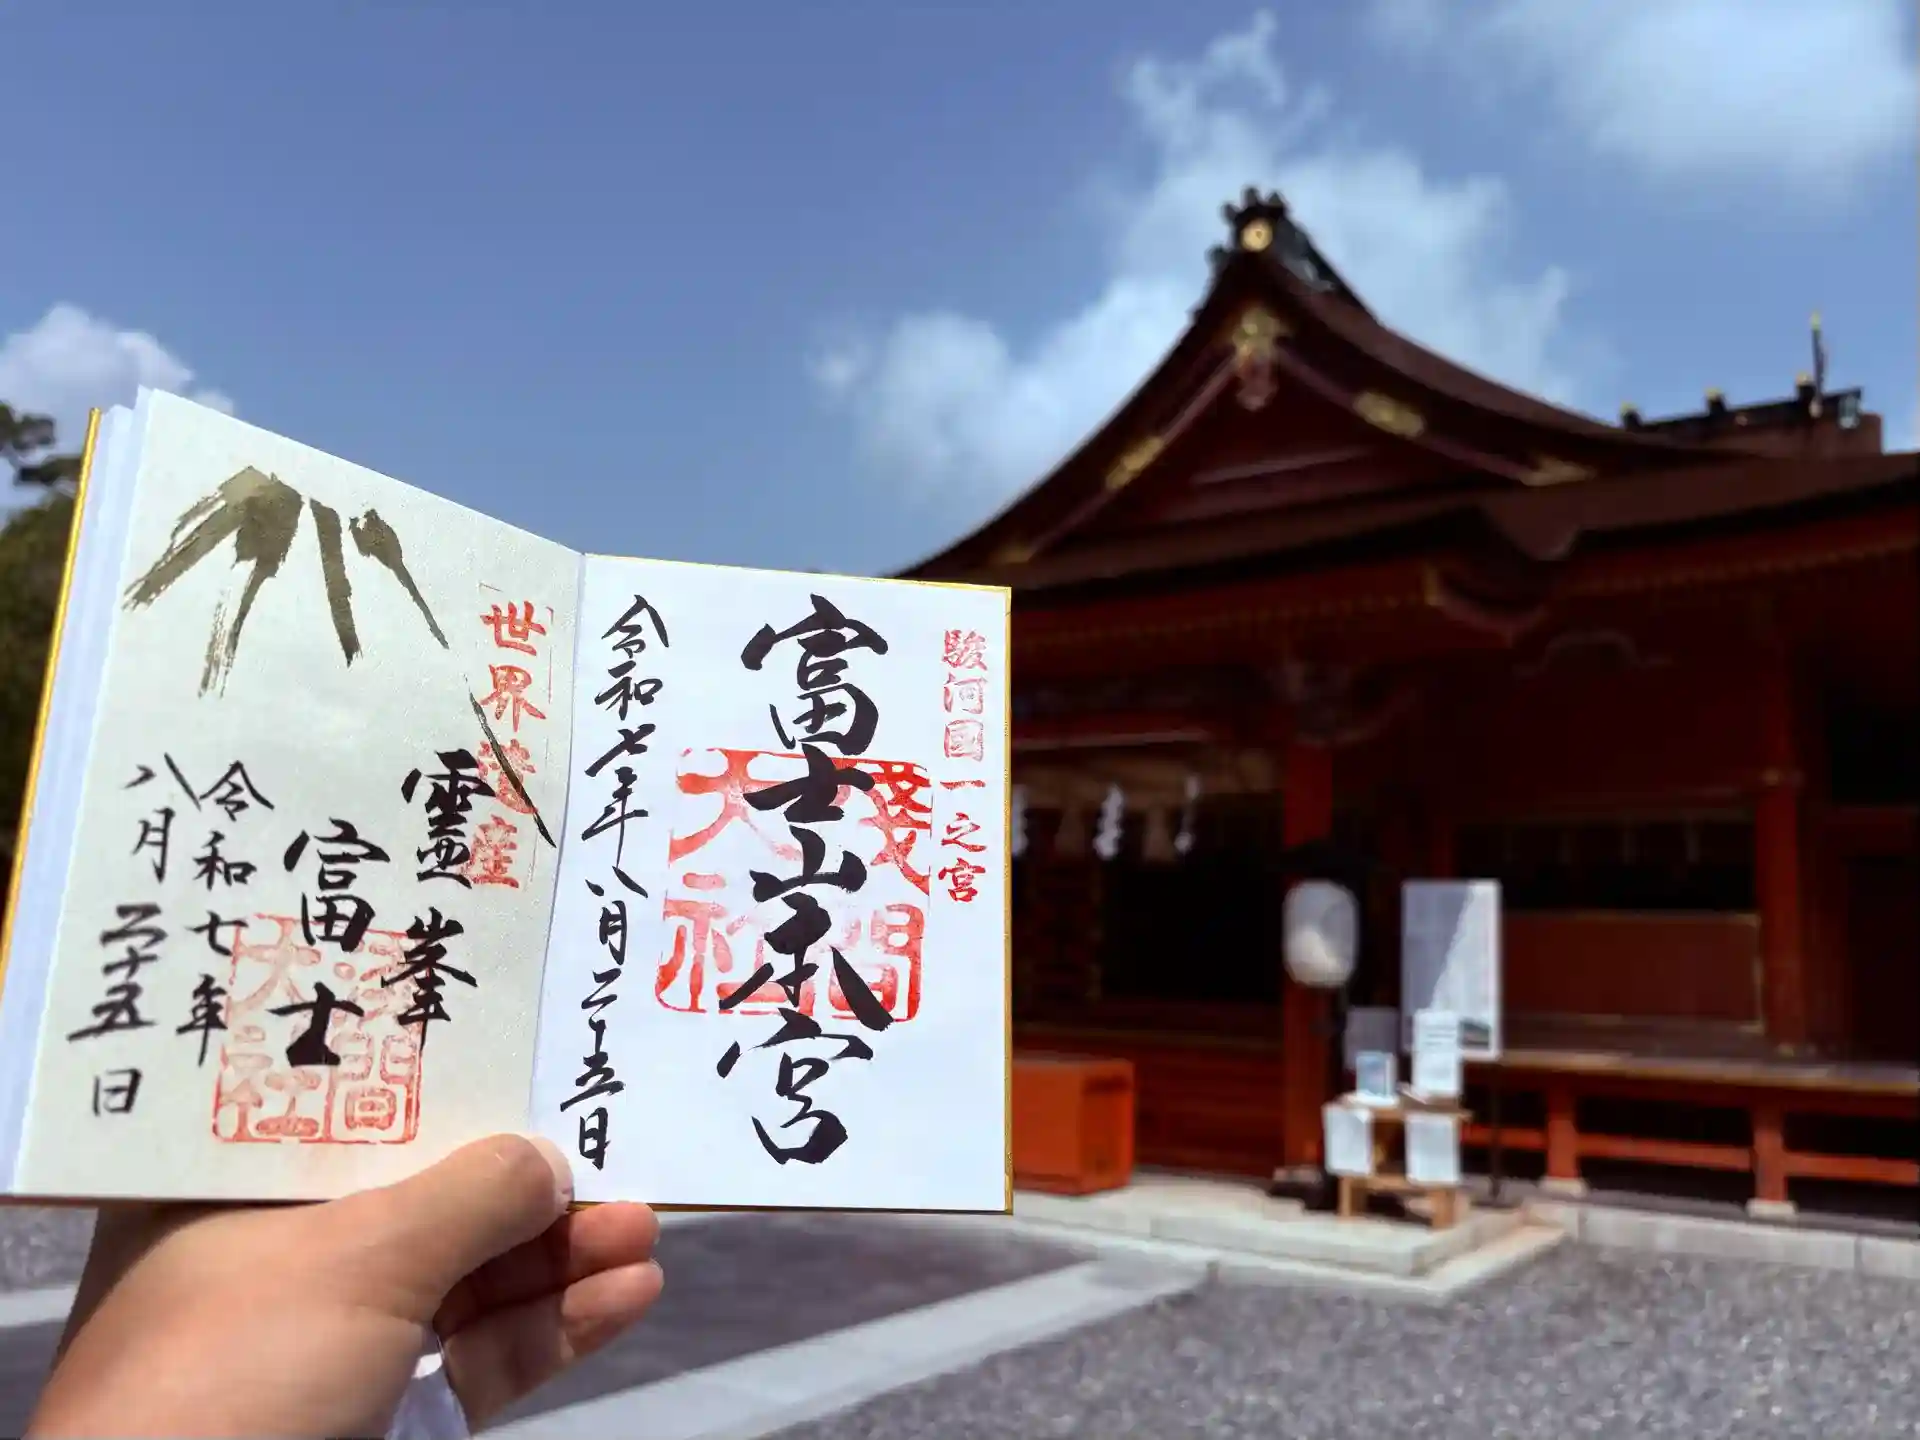 駿河国一之宮
富士山本宮
淺間大社
令和七年八月二十五日
世界遺産
霊峯
富士
淺間大社
令和七年
八月二十五日